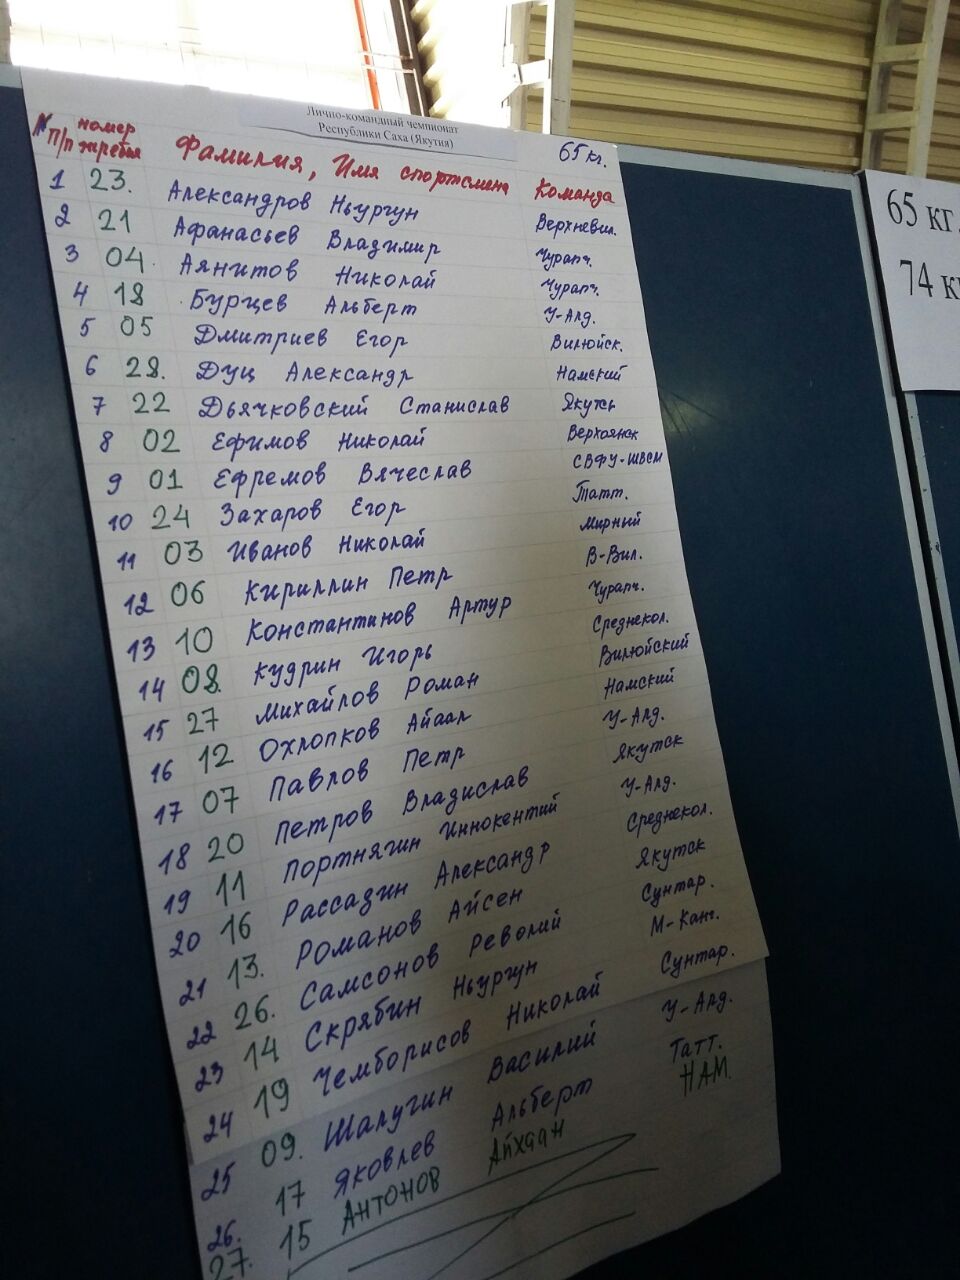 Лично-командный чемпионат
Республики Саха (Якутия)
65 кг.
№ п/п номер жребья Фамилия, Имя спортсмена Команда
1 23. Александров Ньургун Верхневил.
2 21 Афанасьев Владимир Чурапч.
3 04. Аянитов Николай Чурапч.
4 18 Бурцев Альберт У-Алд.
5 05 Дмитриев Егор Вилюйск.
6 28. Дуц Александр Намский
7 22 Дьячковский Станислав Якутск
8 02 Ефимов Николай Верхоянск
9 01 Ефремов Вячеслав СВФУ-ШВСМ
10 24 Захаров Егор Татт.
11 03 Иванов Николай Мирный
12 06 Кириллин Петр В-Вил.
13 10 Константинов Артур Чурапч.
14 08. Кудрин Игорь Среднекол.
15 27 Михайлов Роман Вилюйский
16 12 Охлопков Айаал Намский
17 07 Павлов Петр У-Алд.
18 20 Петров Владислав Якутск
19 11 Портнягин Иннокентий У-Алд.
20 16 Рассадин Александр Среднекол.
21 13. Романов Айсен Якутск
22 26. Самсонов Револий Сунтар.
23 14 Скрябин Ньургун М-Канг.
24 19 Чемборисов Николай Сунтар.
25 09. Шалугин Василий У-Алд.
26. 17 Яковлев Альберт Татт.
27. 15 Антонов Айхаан НАМ.
65 кг.
74 к